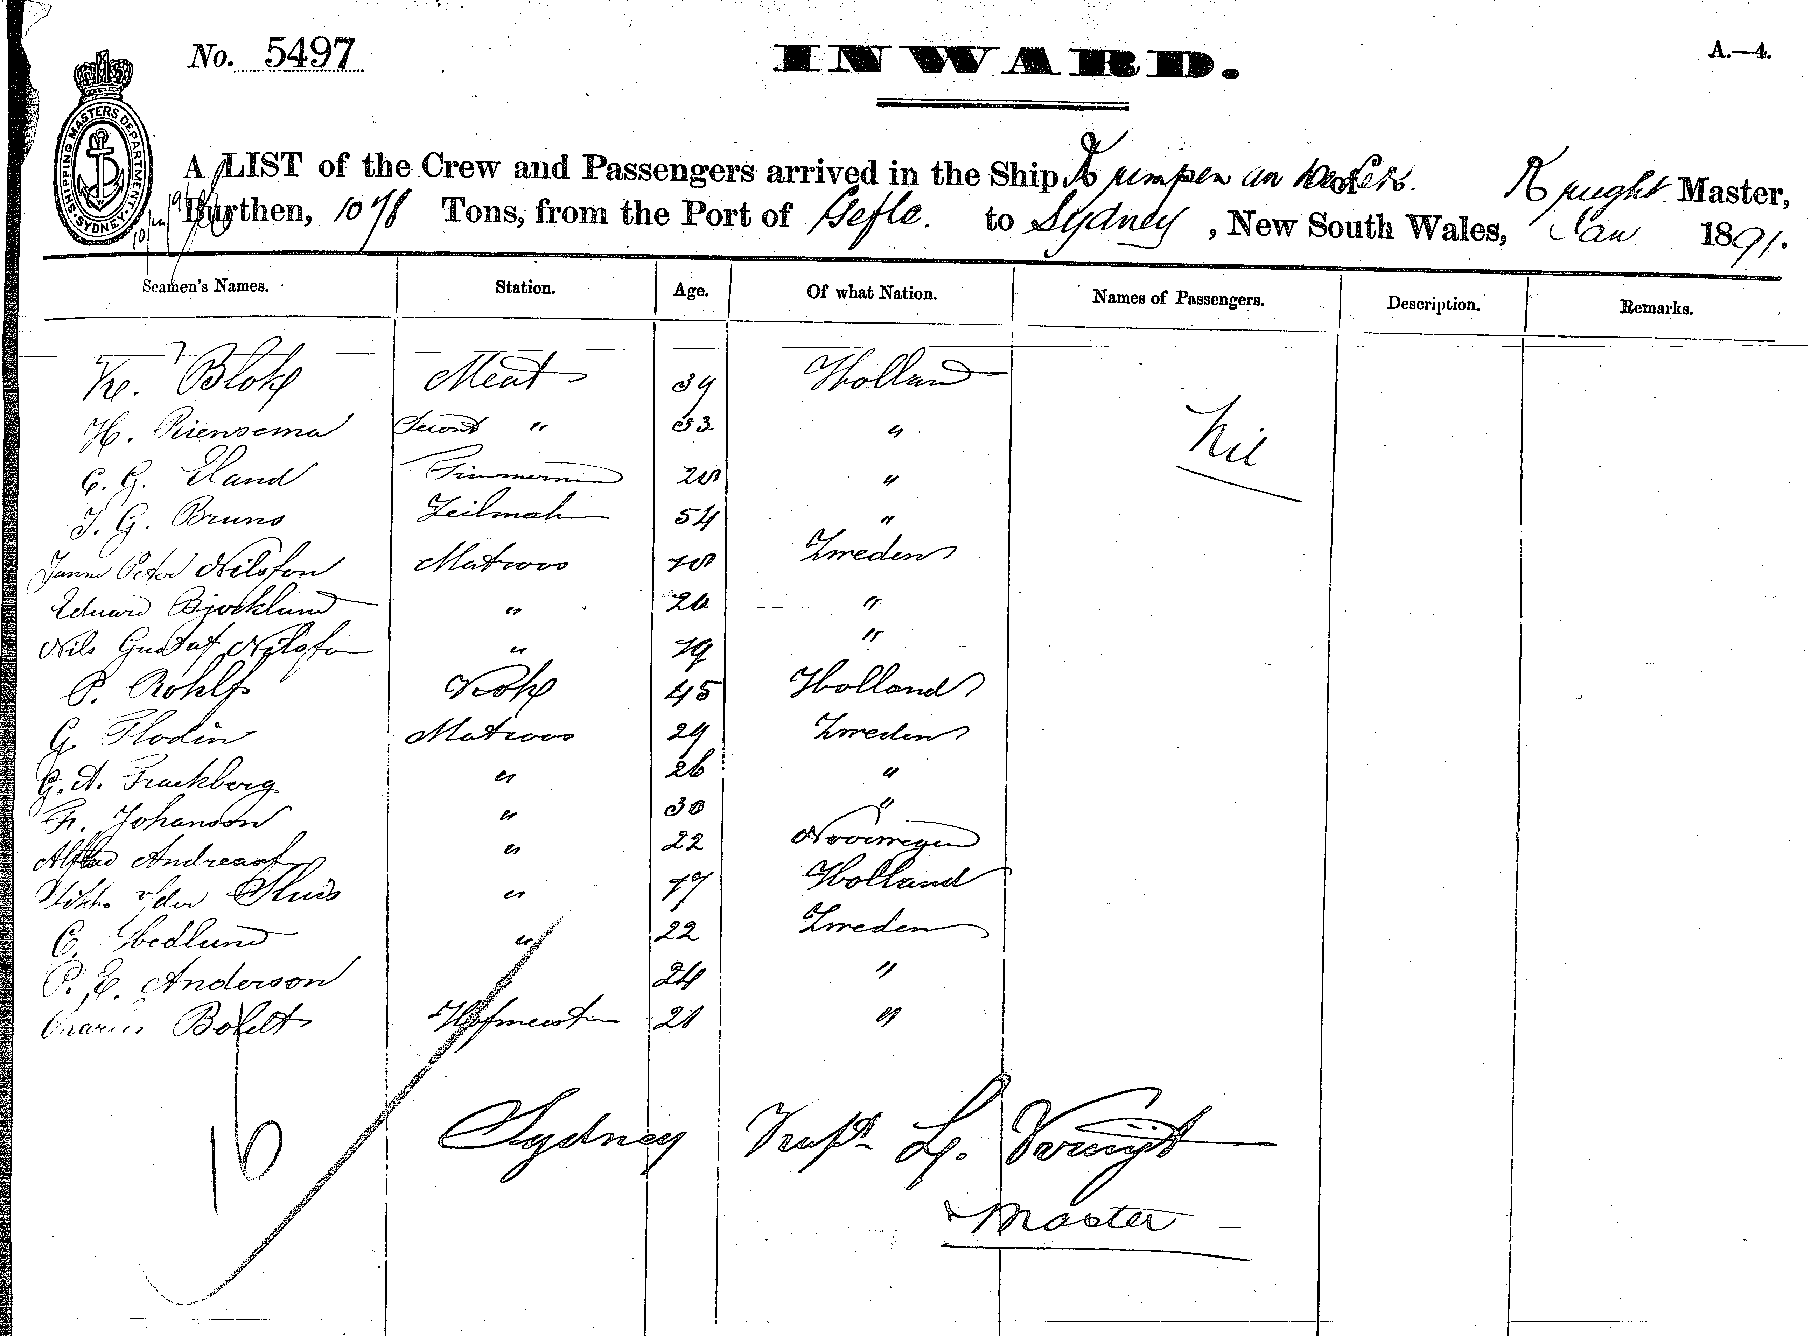 No. 5497
INWARD.
A.—4.
SHIPPING MASTERS DEPARTMENT SYDNEY
A LIST of the Crew and Passengers arrived in the Ship Master,
Burthen, 1078 Tons, from the Port of Gefle. to Sydney, New South Wales, Jan 1891.
Seamen's Names. Station. Age. Of what Nation. Names of Passengers. Description. Remarks.
K. Blok Meat 39 Holland
Nil
H. Riensema Second " 33 "
C. G. Eland Timmerman "
J. G. Bruns Zeilmak 54 "
Peter Nilsson Matroos Zweden
Eduard Bjorklund " "
Nils Gustaf Nilsson " 19 "
P. Rohlfs Kok 45 Holland
G. Flodin Matroos 29 Zweden
G. A. " 26 "
Johanson " 30 "
Alfred " 22 Noorwegen
v/der Sluis " 17 Holland
C. Hedlund " 22 Zweden
P. E. Anderson 24 "
Charles Boldt Hofmeest 21 "
16
Sydney
Master